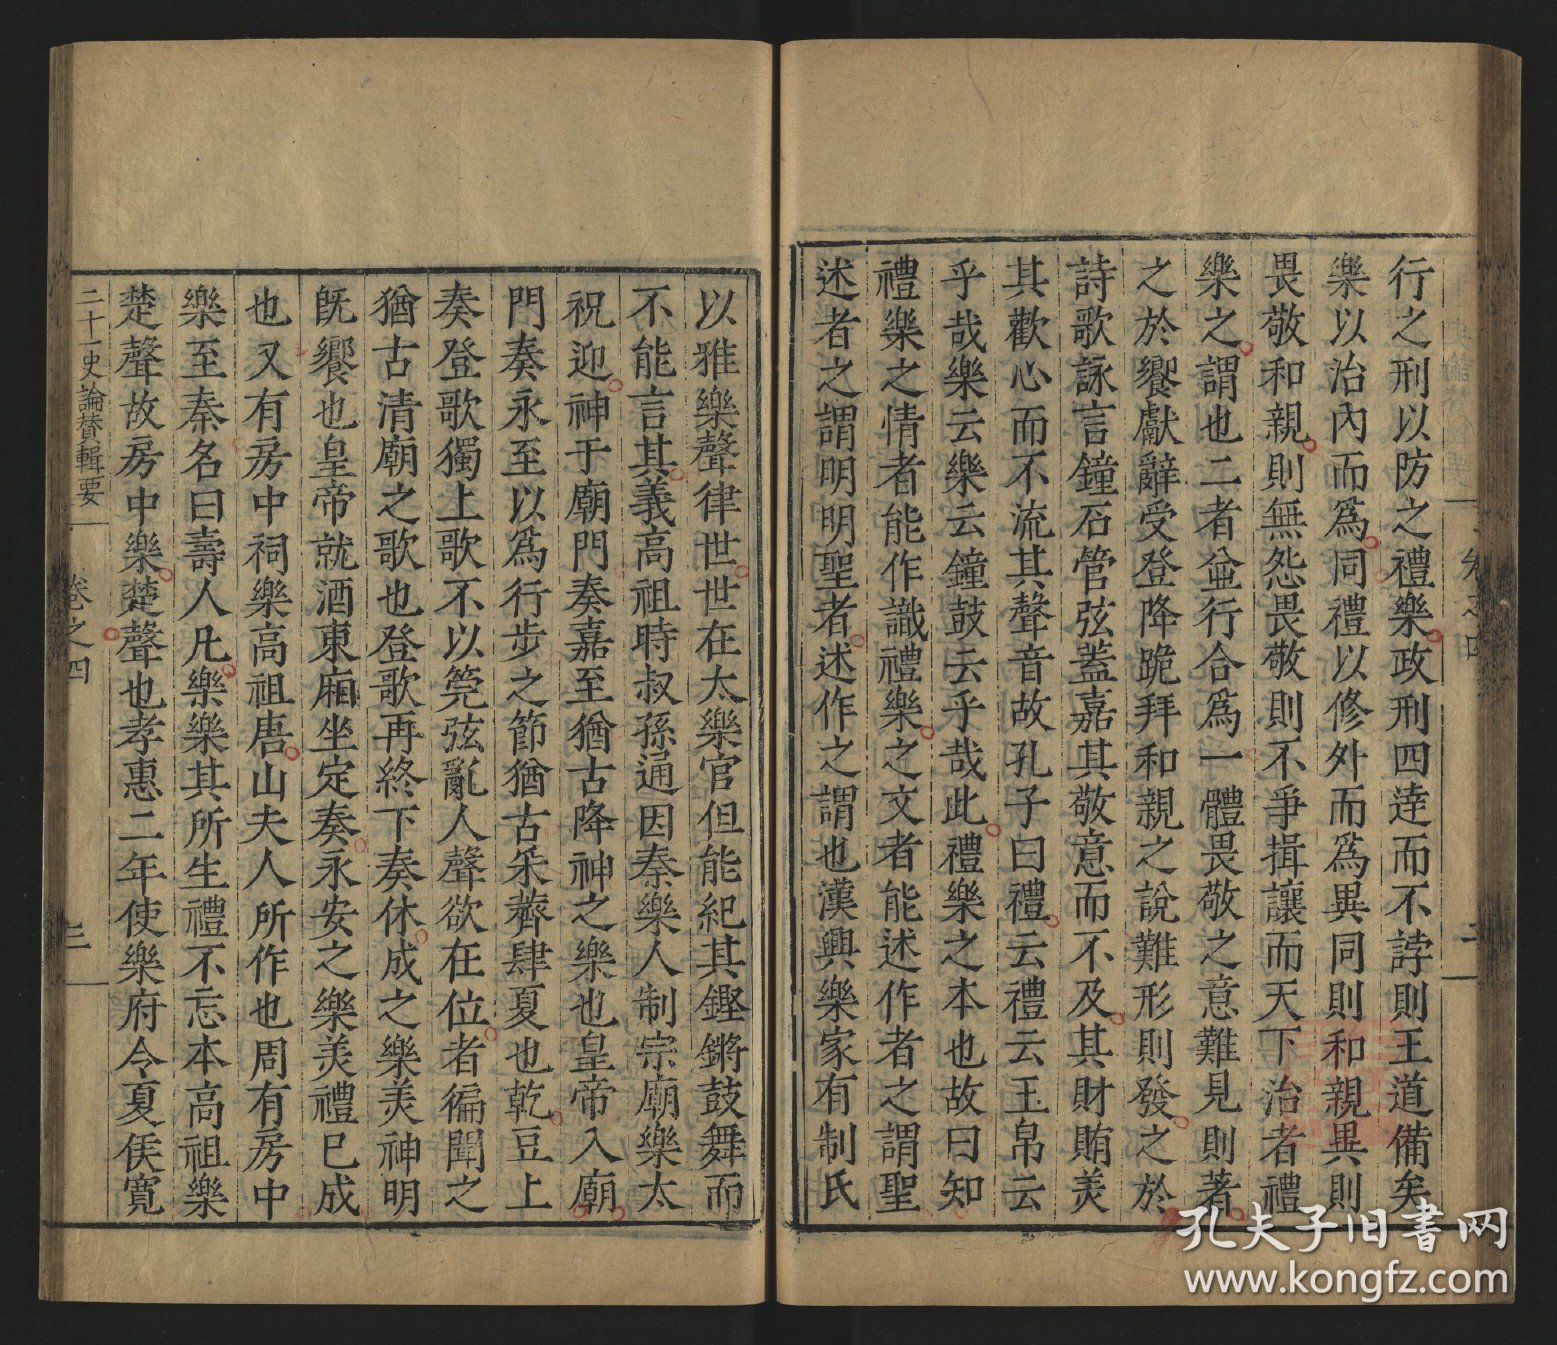 行之刑以防之禮樂政刑四達而不誖則王道備矣
樂以治內而爲同禮以修外而爲異同則和親異則
畏敬和親則無怨畏敬則不爭揖讓而天下治者禮
樂之謂也二者並行合爲一體畏敬之意難見則著
之於饗獻辭受登降跪拜和親之說難形則發之於
詩歌詠言鐘石管弦蓋嘉其敬意而不及其財賄美
其歡心而不流其聲音故孔子曰禮云禮云玉帛云
乎哉樂云樂云鐘鼓云乎哉此禮樂之本也故曰知
禮樂之情者能作識禮樂之文者能述作者之謂聖
述者之謂明明聖者述作之謂也漢興樂家有制氏
以雅樂聲律世世在太樂官但能紀其鏗鏘鼓舞而
不能言其義高祖時叔孫通因秦樂人制宗廟樂太
祝迎神于廟門奏嘉至猶古降神之樂也皇帝入廟
門奏永至以爲行步之節猶古采薺肆夏也乾豆上
奏登歌獨上歌不以筦弦亂人聲欲在位者徧聞之
猶古清廟之歌也登歌再終下奏休成之樂美神明
既饗也皇帝就酒東廂坐定奏永安之樂美禮已成
也又有房中祠樂高祖唐山夫人所作也周有房中
樂至秦名曰壽人凡樂樂其所生禮不忘本高祖樂
楚聲故房中樂楚聲也孝惠二年使樂府令夏侯寬
二十一史論贊輯要
卷之四
三
孔夫子旧书网
www.kongfz.com